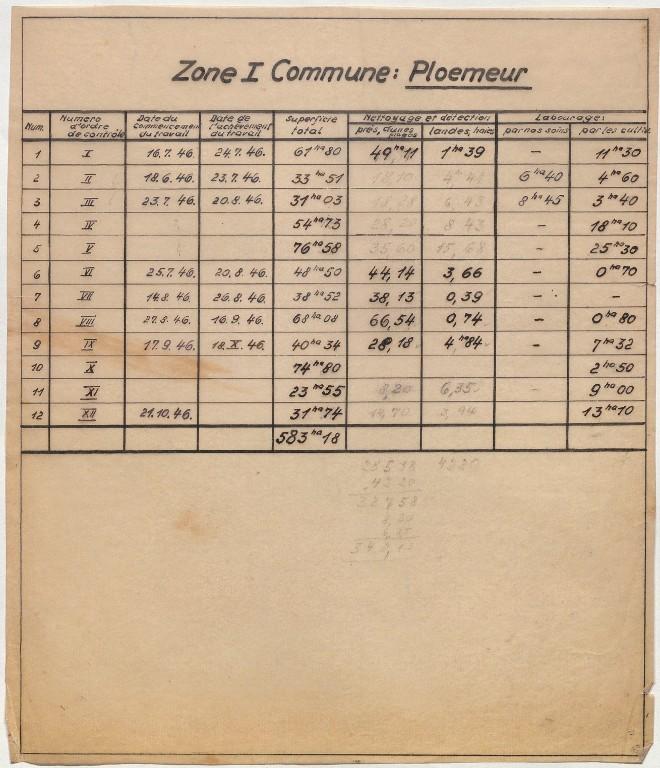 Zone I Commune: Ploemeur
Num. Numéro d'ordre de contrôle Date du commencement du travail Date de l'achèvement du travail Superficie total Nettoyage et détection Labourage:
prés, dunes plages landes, haies par nos soins par les cultiv.
1 I 16.7.46. 24.7.46. 61 ha 80 49 ha 11 1 ha 39 – 11 ha 30
2 II 18.6.46. 23.7.46. 33 ha 51 6 ha 40 4 ha 60
3 III 23.7.46. 20.8.46. 31 ha 03 18,28 6,43 8 ha 45 3 ha 40
4 IV 54 ha 73 8 43 – 18 ha 10
5 V 76 ha 58 35,60 15,68 – 25 ha 30
6 VI 25.7.46. 20.8.46. 48 ha 50 44,14 3,66 – 0 ha 70
7 VII 14.8.46. 26.8.46. 38 ha 52 38,13 0,39 – –
8 VIII 27.8.46. 16.9.46. 68 ha 08 66,54 0,74 – 0 ha 80
9 IX 17.9.46. 18.X.46. 40 ha 34 28,18 4 ha 84 – 7 ha 32
10 X 74 ha 80 2 ha 50
11 XI 23 ha 55 8,20 6,35 – 9 ha 00
12 XII 21.10.46. 31 ha 74 14,70 3,94 13 ha 10
583 ha 18
4220
42 20